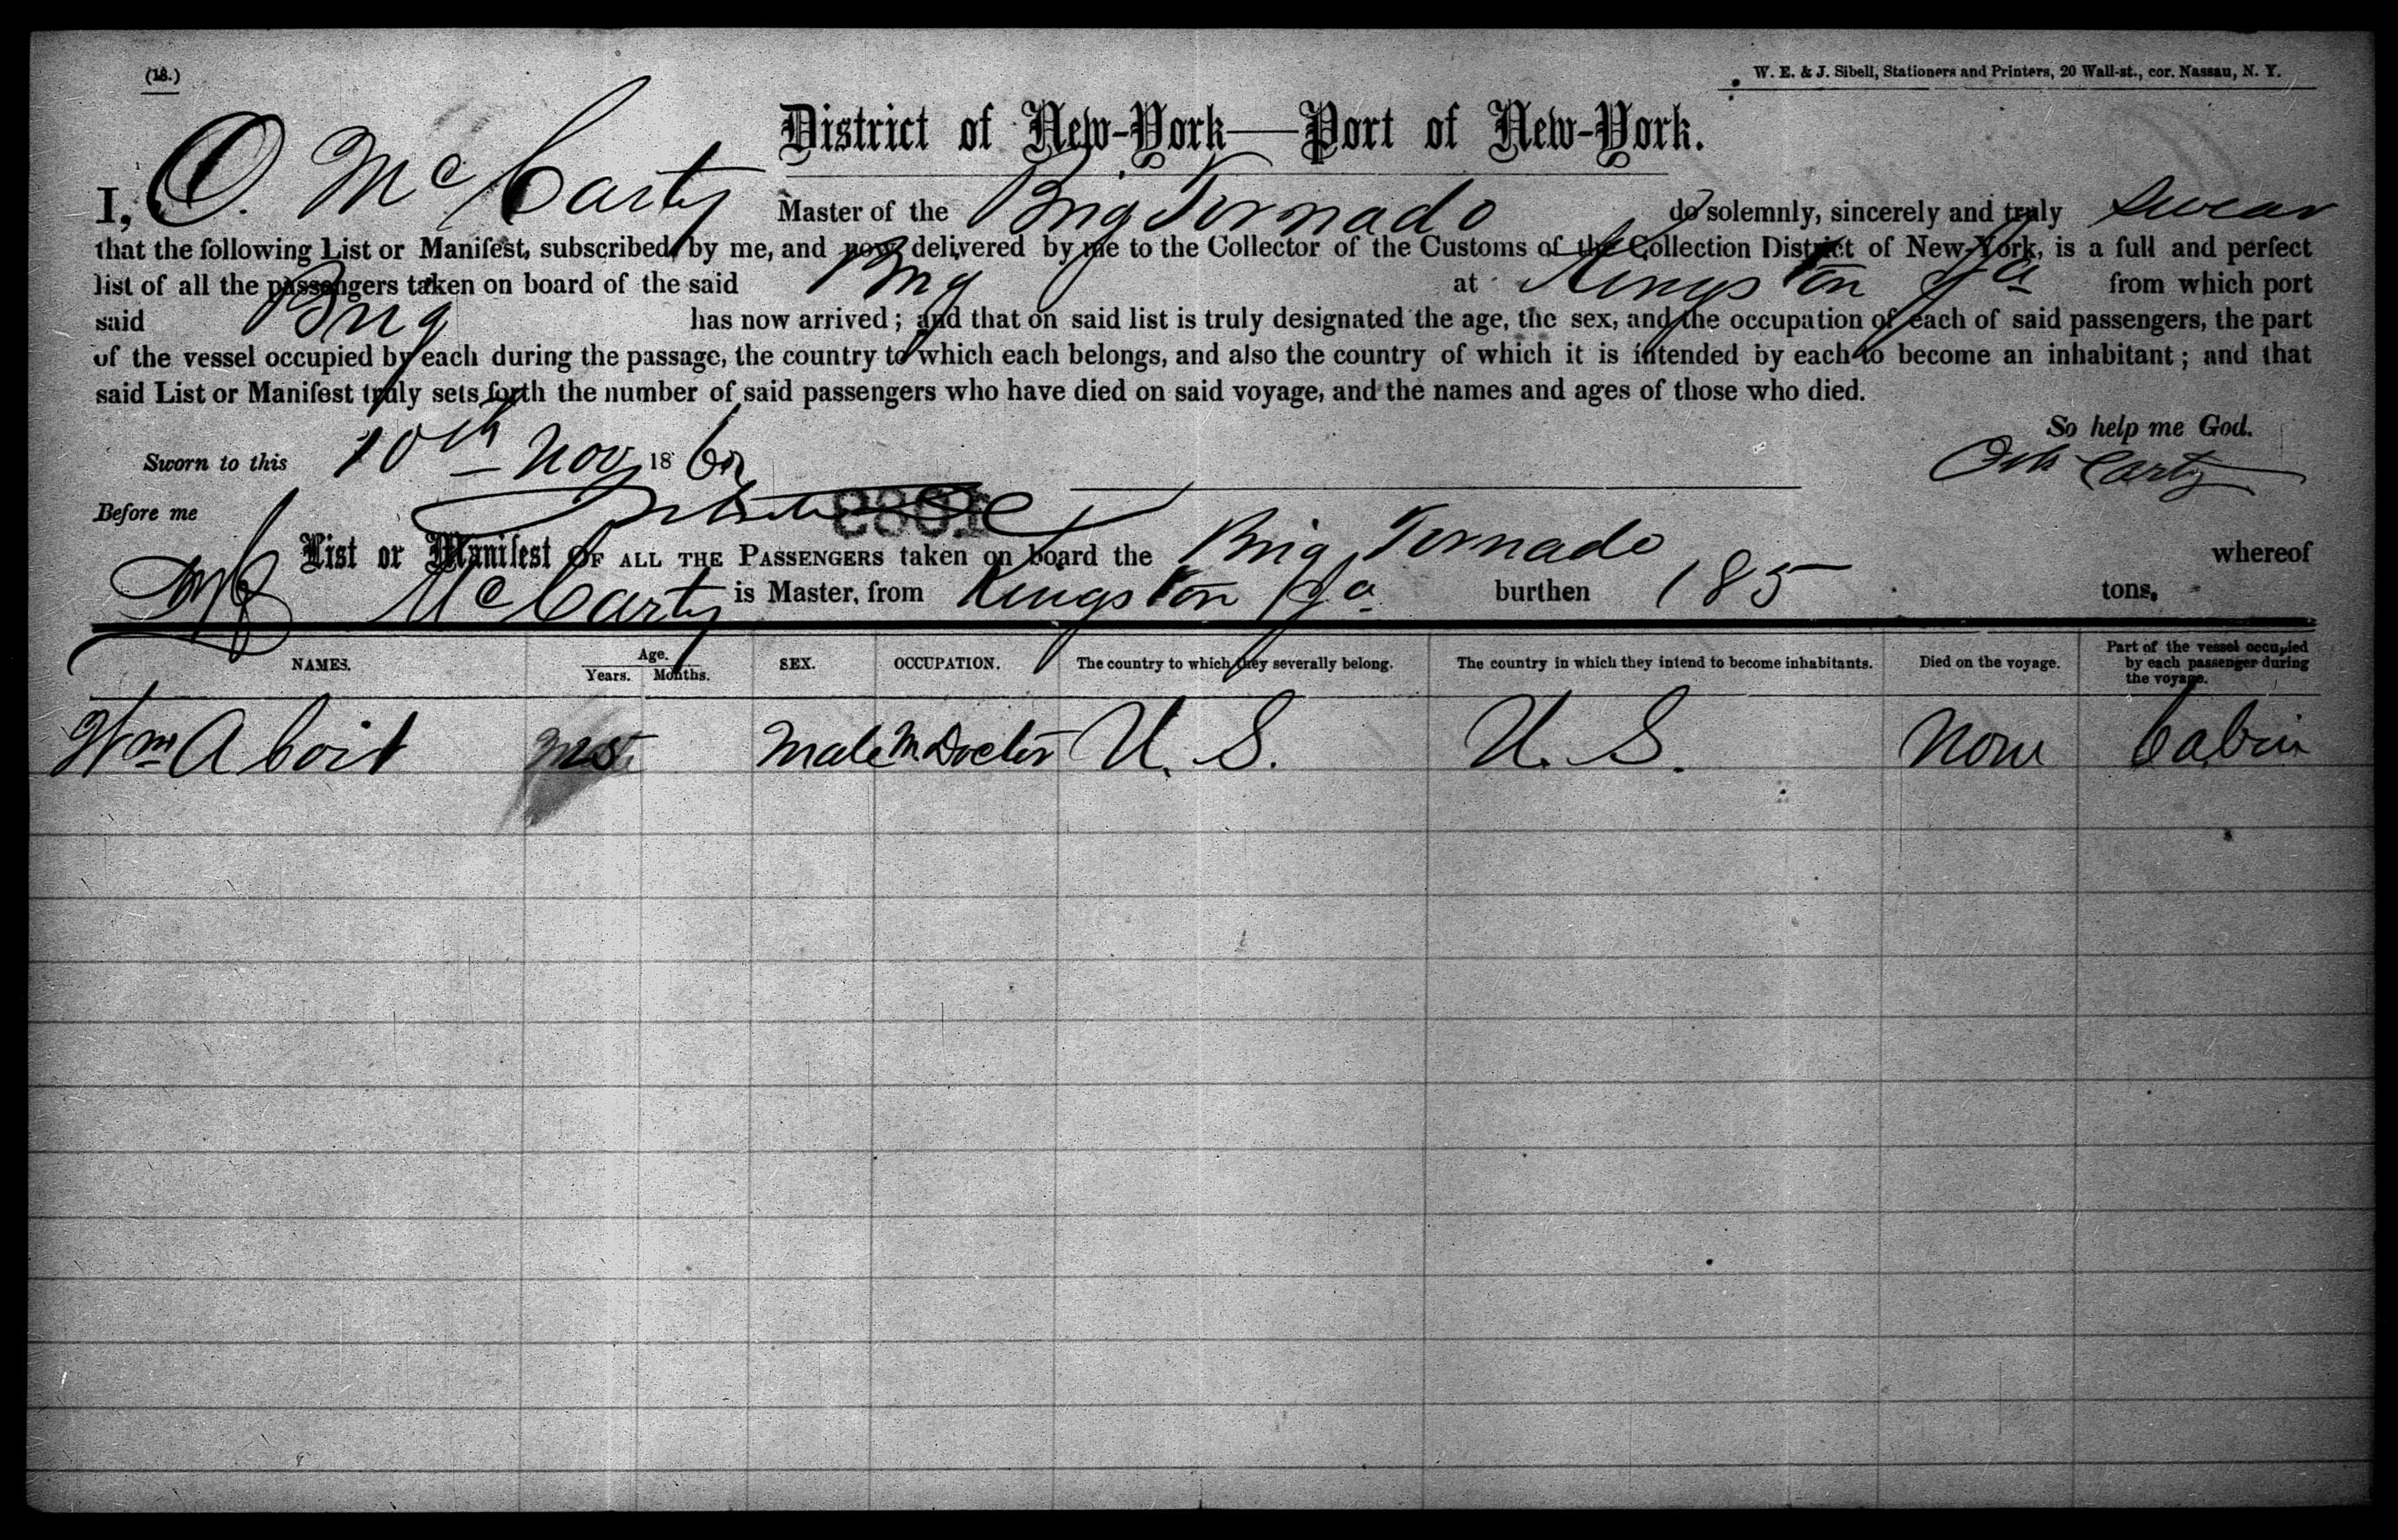 (18.)
W. E. & J. Sibell, Stationers and Printers, 20 Wall-st., cor. Nassau, N. Y.
District of New-York—Port of New-York.
I, O. McCarty Master of the Brig Tornado do solemnly, sincerely and truly swear
that the following List or Manifest, subscribed by me, and now delivered by me to the Collector of the Customs of the Collection District of New-York, is a full and perfect
list of all the passengers taken on board of the said Brig at Kingston Ja from which port
said Brig has now arrived; and that on said list is truly designated the age, the sex, and the occupation of each of said passengers, the part
of the vessel occupied by each during the passage, the country to which each belongs, and also the country of which it is intended by each to become an inhabitant; and that
said List or Manifest truly sets forth the number of said passengers who have died on said voyage, and the names and ages of those who died.
So help me God.
Sworn to this 10th Nov 186
O Mc Carty
Before me
List or Manifest OF ALL THE PASSENGERS taken on board the Brig Tornado whereof
McCarty is Master, from Kingston Ja burthen 185 tons.
NAMES. Age. Years. Months. SEX. OCCUPATION. The country to which they severally belong. The country in which they intend to become inhabitants. Died on the voyage. Part of the vessel occupied by each passenger during the voyage.
Wm A Coit Male M. Doctor U. S. U. S. None Cabin